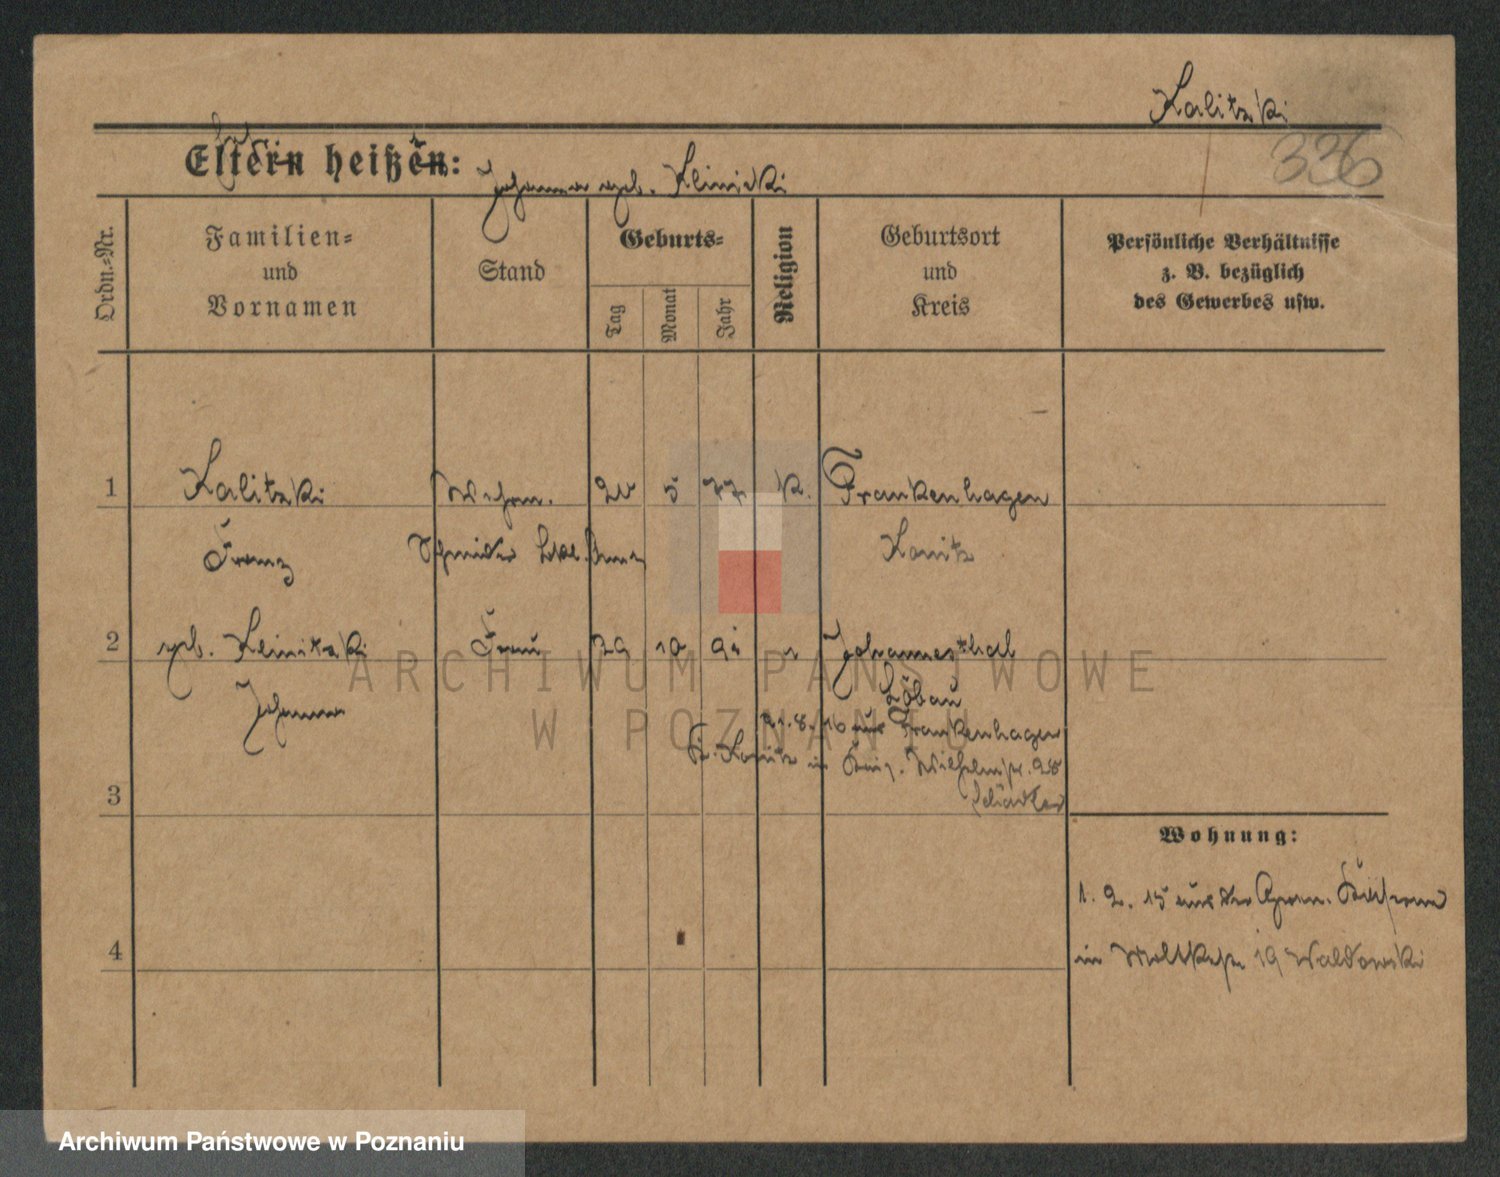 Kalitzki
336
Eltern heißen:
Johanna geb. Klinitzki
Ordn.-Nr.
Familien-
und
Vornamen
Stand
Geburts-
Tag
Monat
Jahr
Religion
Geburtsort
und
Kreis
Persönliche Verhältnisse
z. B. bezüglich
des Gewerbes usw.
1 Kalitzki Wehrm. 20 5 77 K. Frankenhagen
Franz Schneider Konitz
2 geb. Klinitzki Frau 29 10 Johannesthal
Johanna Löbau
21. 8. 16 aus Frankenhagen
Kr. Konitz in Wilhelmstr. 28
3
Wohnung:
1. 2. 15 aus der
4 in Moltkestr 19 Waldowski
ARCHIWUM PAŃSTWOWE
W POZNANIU
Archiwum Państwowe w Poznaniu